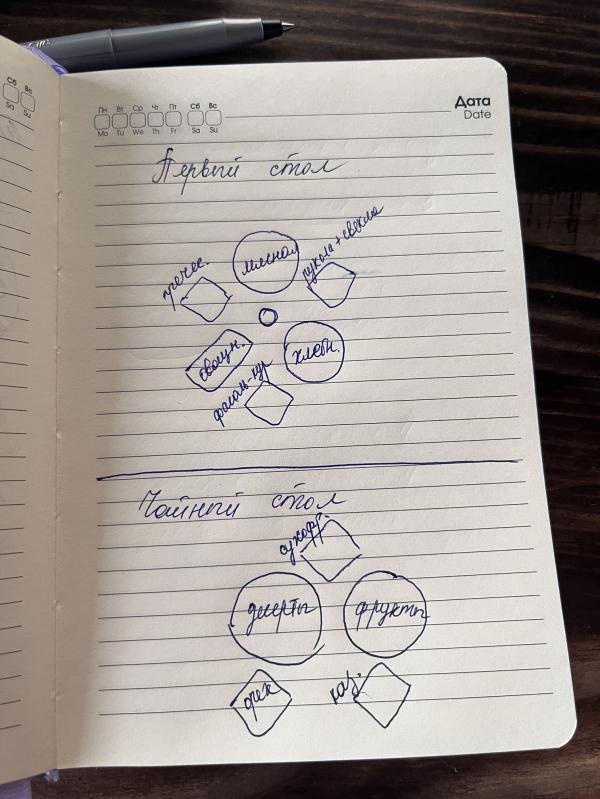 Сб Вс
Sa Su
Пн Вт Ср Чт Пт Сб Вс
Mo Tu We Th Fr Sa Su
Дата
Date
Первый стол
мясная
рукола+свекла
гречес.
овощн.
хлебн.
фасоль-кур
Чайный стол
сухофр.
десерты
фрукты
орех